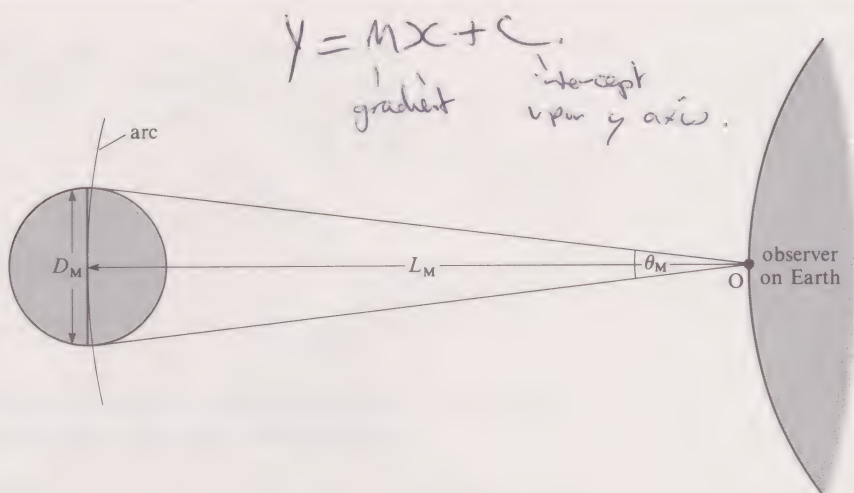 y = mx + c.
gradient intercept
upon y axis.
arc
D_M L_M θ_M O observer
on Earth